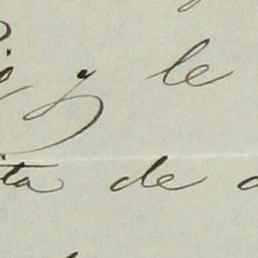 y le
ita de